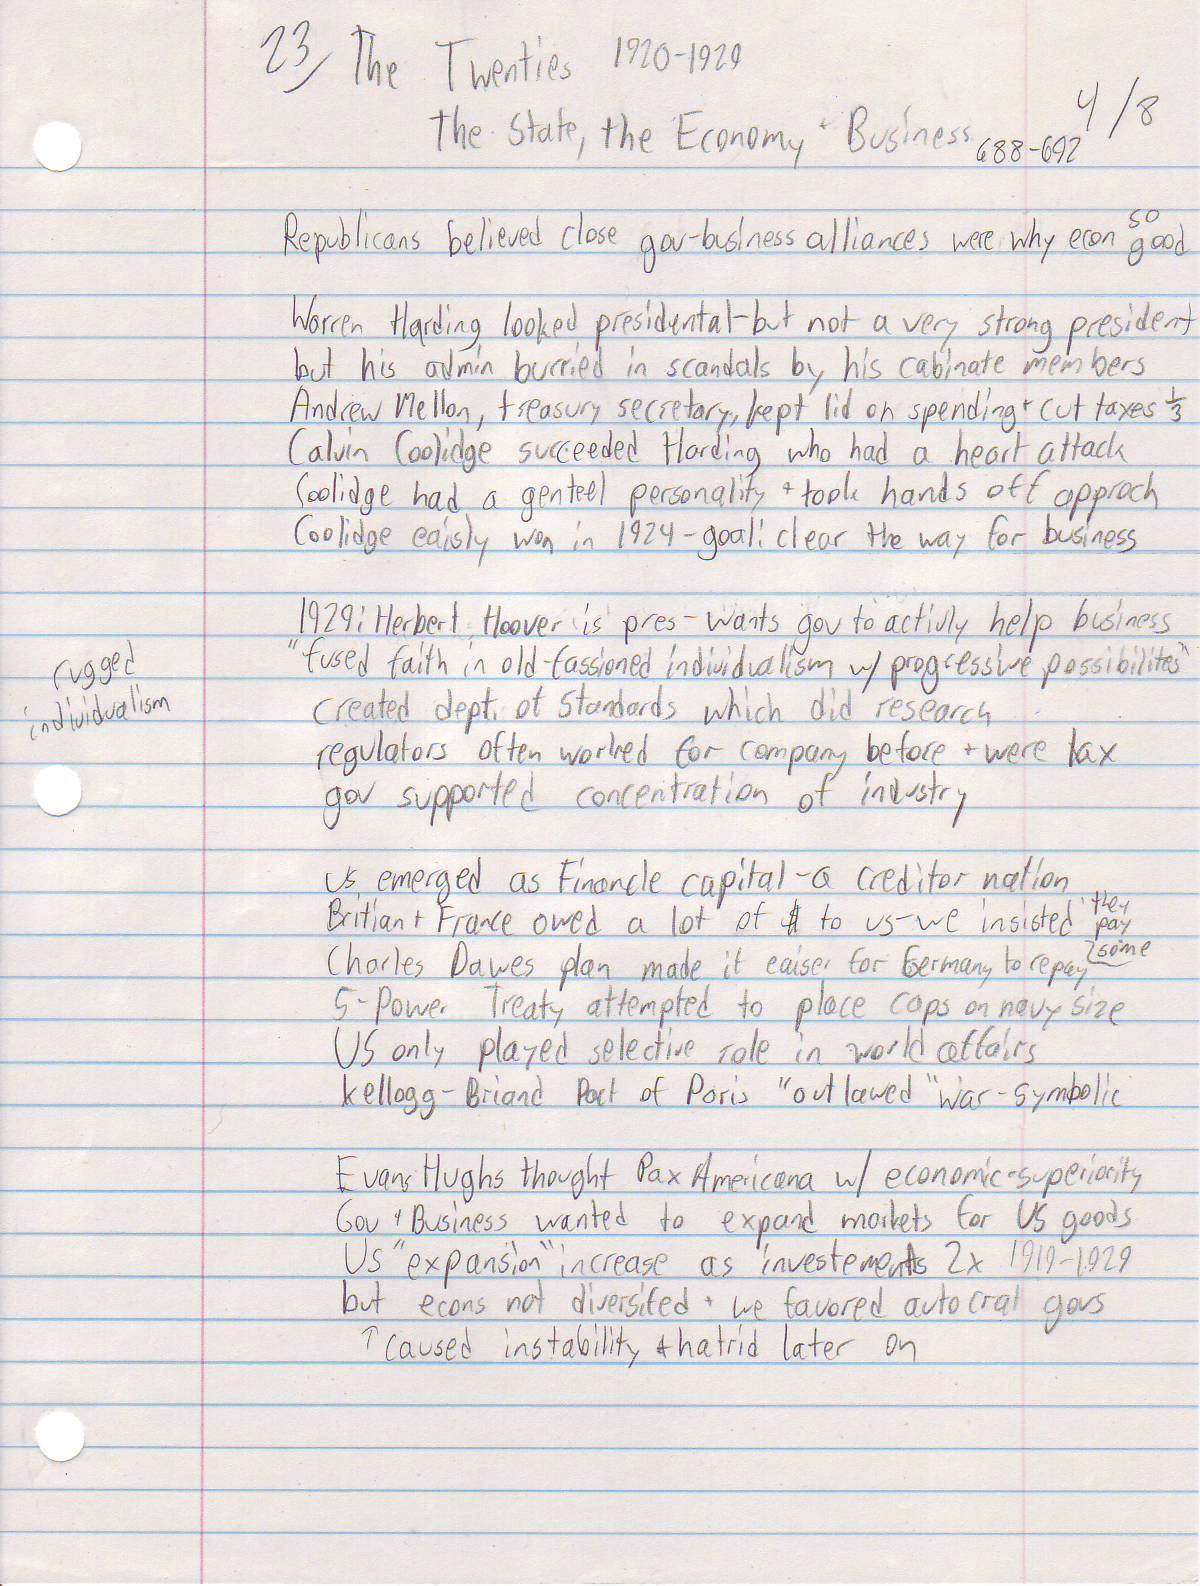 23/ The Twenties 1920-1929
The State, the Economy + Business 688-692
4/8
Republicans believed close gov-business alliances were why econ so good
Warren Harding looked presidental-but not a very strong president
but his admin burried in scandals by his cabinate members
Andrew Mellon, treasury secretary, kept lid on spending + cut taxes 1/3
Calvin Coolidge succeeded Harding who had a heart attack
Coolidge had a genteel personality + took hands off approch
Coolidge eaisly won in 1924-goal: clear the way for business
1929: Herbert Hoover is pres- wants gov to activly help business
"fused faith in old-fassioned individualism w/ progressive possibilites"
rugged
individualism
created dept. of Standards which did research
regulators often worked for company before + were lax
gov supported concentration of industry
US emerged as Financle capital-a creditor nation
Britian + France owed a lot of $ to us-we insisted they pay some
Charles Dawes plan made it eaiser for Germany to repay
5-Power Treaty attempted to place caps on navy size
US only played selective role in world affairs
Kellogg-Briand Pact of Paris "outlawed" war-symbolic
Evans Hughs thought Pax Americana w/ economic-superiority
Gov + Business wanted to expand markets for US goods
US "expansion" increase as investements 2x 1919-1929
but econs not diversifed + we favored autocrat govs
↑ caused instability + hatrid later on